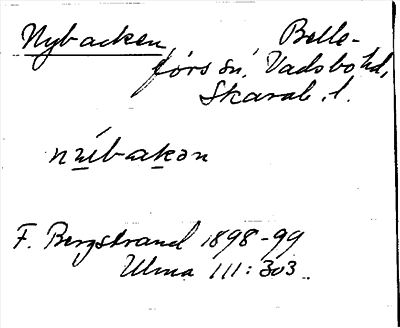 Nybacken, Belle-
fors sn, Vadsbo hd,
Skarab. l.
nuíbakən
F. Bergstrand 1898-99
Ulma 111:303